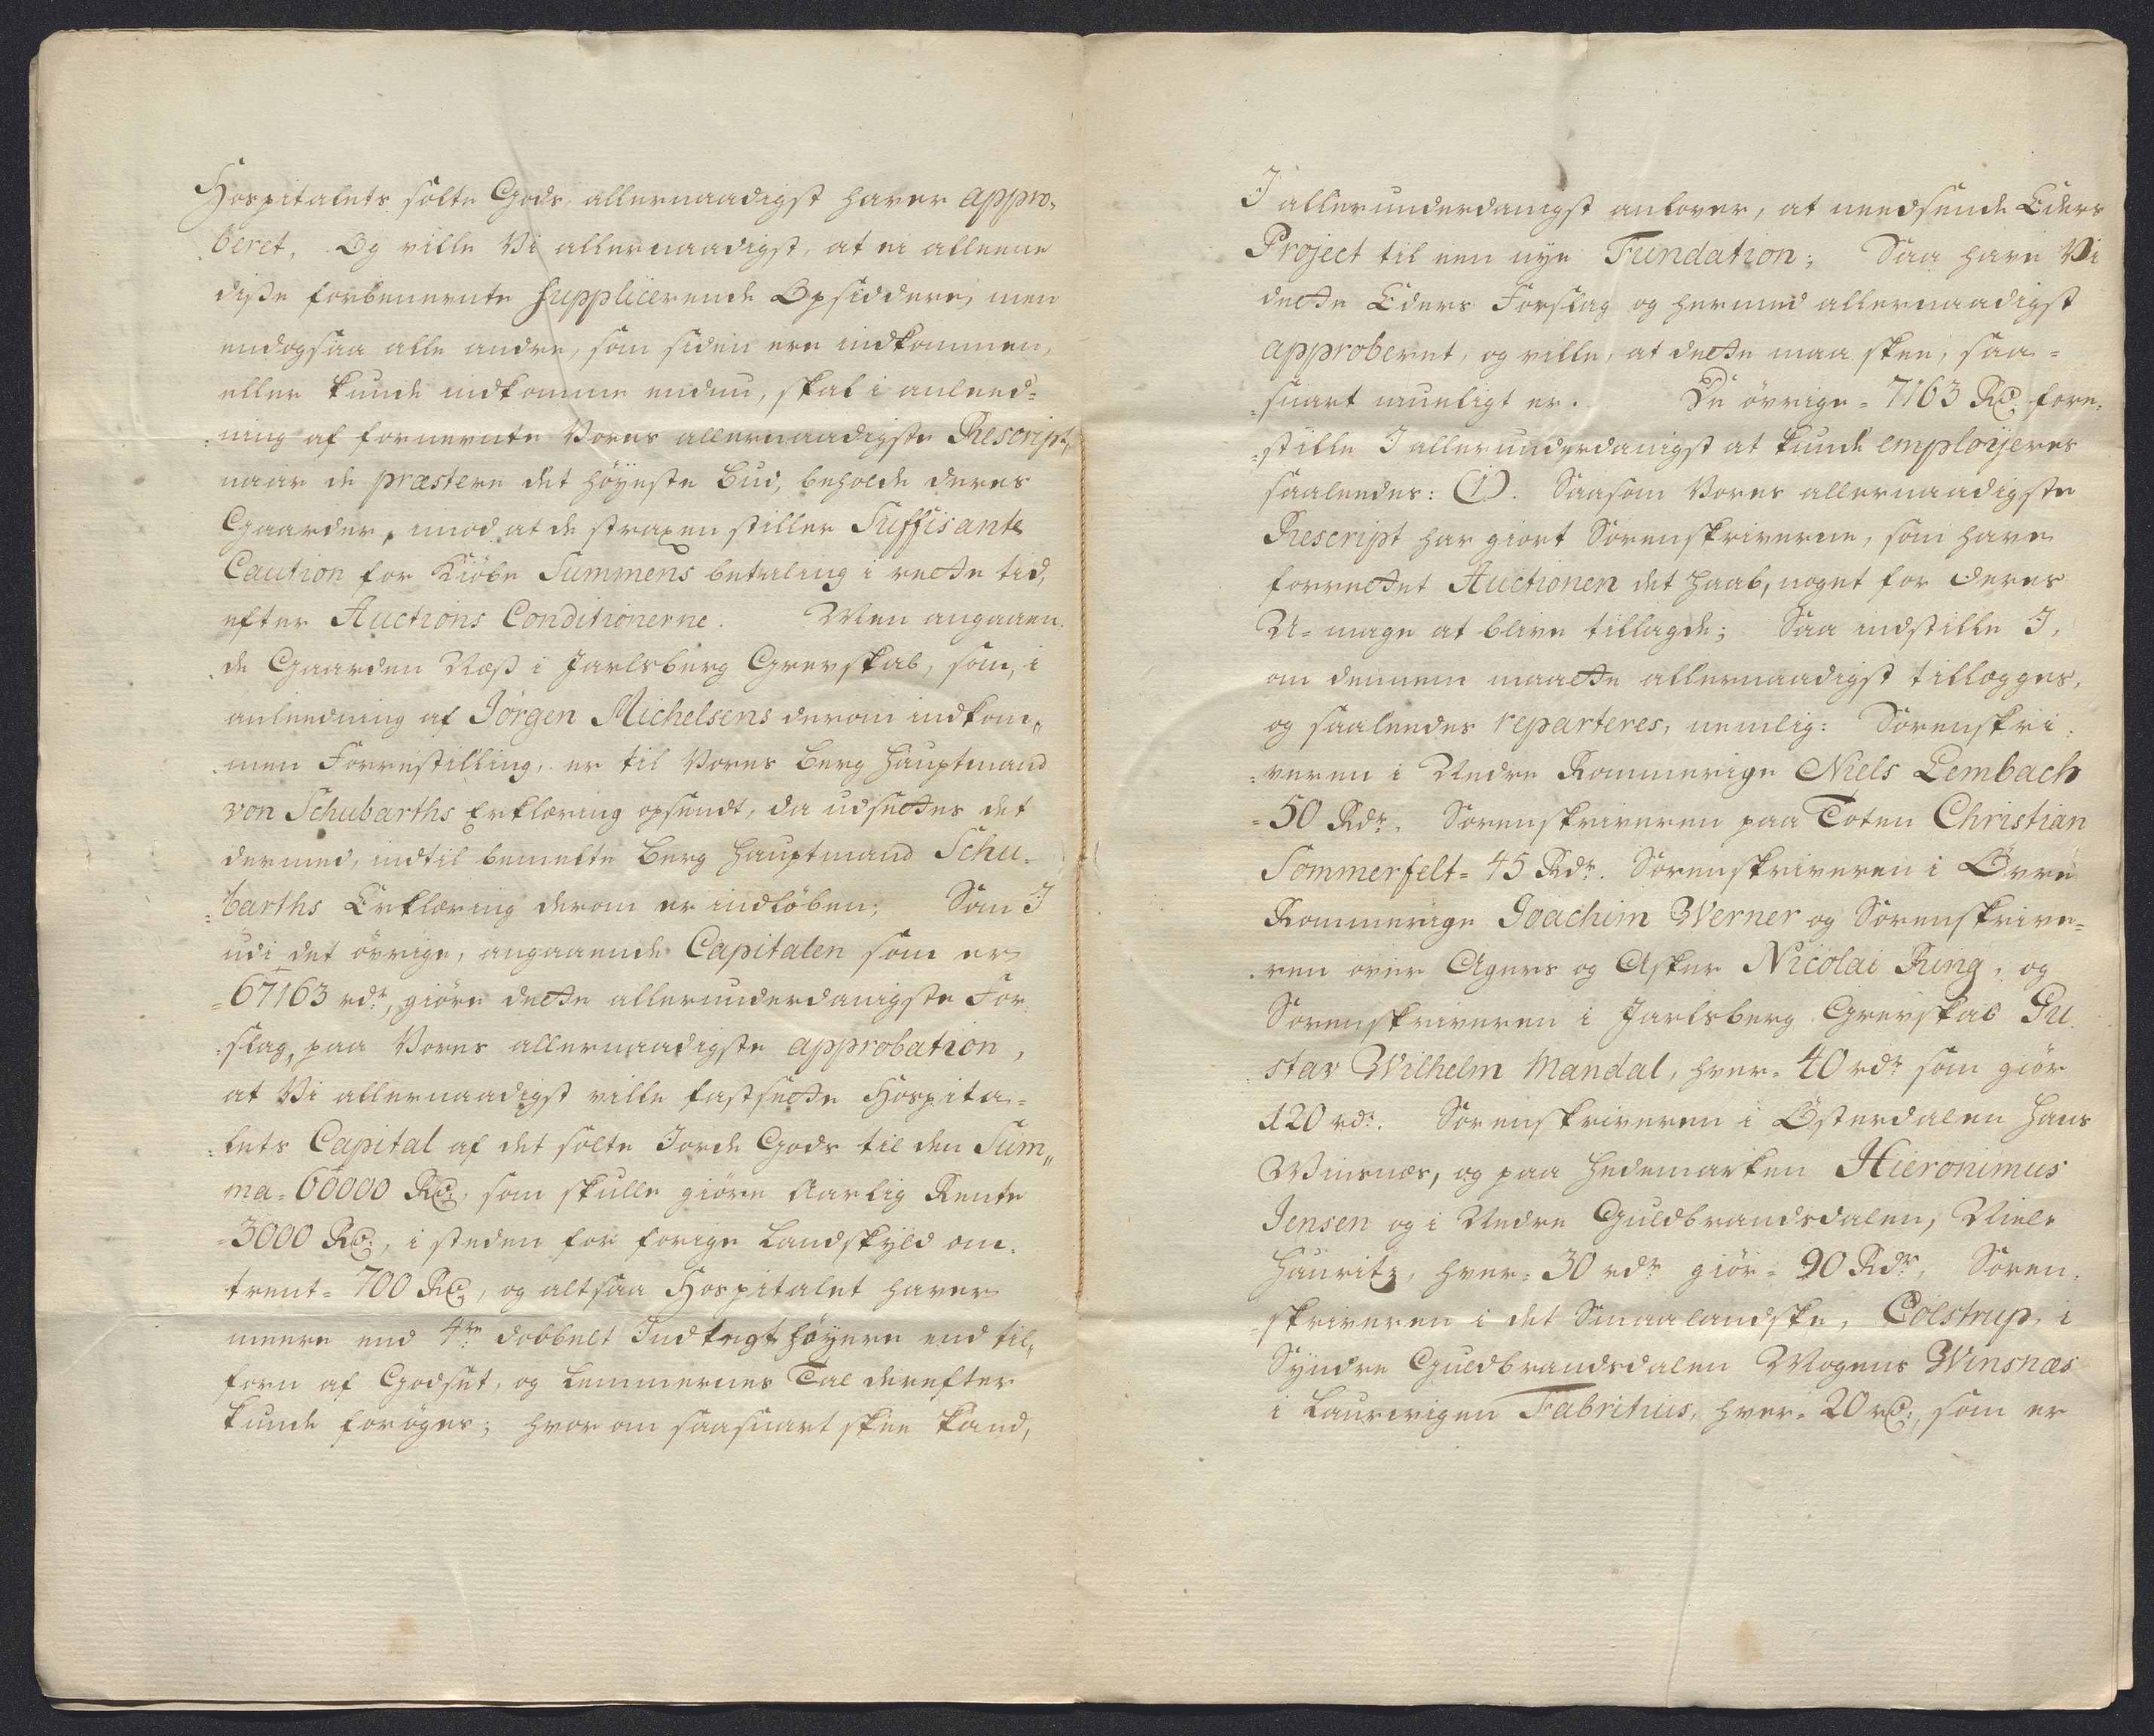 Hospitalets solte Gods allernaadigst haver appro-
beret, Og ville Vi allernaadigst, at ei alleene
disse forbenevnte Supplicerende Opsiddere, men
endogsaa alle andre, som siden ere indkommen,
eller kunde indkomme endnu, skal i anleed-
-ning af fornevnte Vores allernaadigste Rescript,
naar de præstere det høyeste Bud, beholde deres
Gaarder, imod at de straxen stiller Suffisante
Caution for Kiöbe Summens betaling i rette tid,
efter Auctions Conditionerne. Men angaaen-
de Gaarden Næss i Jarlsberg Grevskab, som, i
anleedning af Jörgen Michelsens derom indkom„
men Forrestilling, er til Vores Berg Hauptmand
von Schubarths Erklæring opsendt, da udsettes det
dermed, indtil bemelte Berg Hauptmand Schu-
-barths Erklæring derom er indløben; Som I
udi det øvrige, angaaende Capitalen som er
=67163 rdr, giøre dette allerunderdanigste For
-slag, paa Vores allernaadigste approbation,
at Vi allernaadigst ville fastsette Hospita-
-lets Capital af det solte Jorde Gods til den Sum„
ma = 60000 Rd, som skulle giøre Aarlig Rente
=3000 Rd, i steden for forige Landskyld om-
trent = 700 Rd, og altsaa Hospitalet haver
meere end 4re dobbelt Indtægt høyere end til„
forn af Godset, og Lemmernes Tal derefter
kunde forøges; hvorom saasnart skee kand,
I allerunderdanigst anlover, at needsende Eders
Project til een nye Fundation; Saa have Vi
dette Eders Forslag og hermed allernaadigst
approberet, og ville, at dette maa skee, saa-
-snart mueligt er. De øvrige = 7163 Rd fore-
-stille I allerunderdanigst at kunde employeres
saaleedes: (1). Saasom Vores allernaadigste
Rescript har giort Sorenskriverne, som have
forrettet Auctionen det Haab, noget for deres
U-mage at blive tillagde; Saa indstille I,
om dennem maatte allernaadigst tillægges,
og saaleedes reparteres, nemlig: Sorenskri-
-veren i Nedre Rommerige Niels Lembach
=50 Rdr. Sorenskriveren paa Toten Christian
Sommerfelt = 45 Rdr. Sorenskriveren i Øvre
Rommerige Joachim Werner og Sorenskrive-
-ren over Agers og Asker Nicolai Ring, og
Sorenskriveren i Jarlsberg Grevskab Gu-
stav Wilhelm Mandal, hver = 40 rdr som giør
120 rdr. Sorenskriveren i Østerdalen Hans
Winsnæs, og paa Hedemarken Hieronimus
Jensen og i Nedre Guldbrandsdalen, Niels
Hauritz, hver = 30 rdr giør = 90 Rdr, Soren-
-skriveren i det Smaalandske, Colstrup, i
Syndre Guldbrandsdalen Mogens Winsnæs
i Laurvigen Fabritius, hver = 20 rd, som er